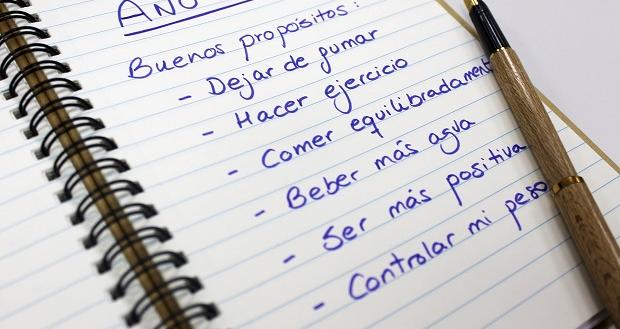 AÑO
Buenos propósitos:
- Dejar de fumar
- Hacer ejercicio
- Comer equilibradament
- Beber más agua
- Ser más positiva
- Controlar mi peso